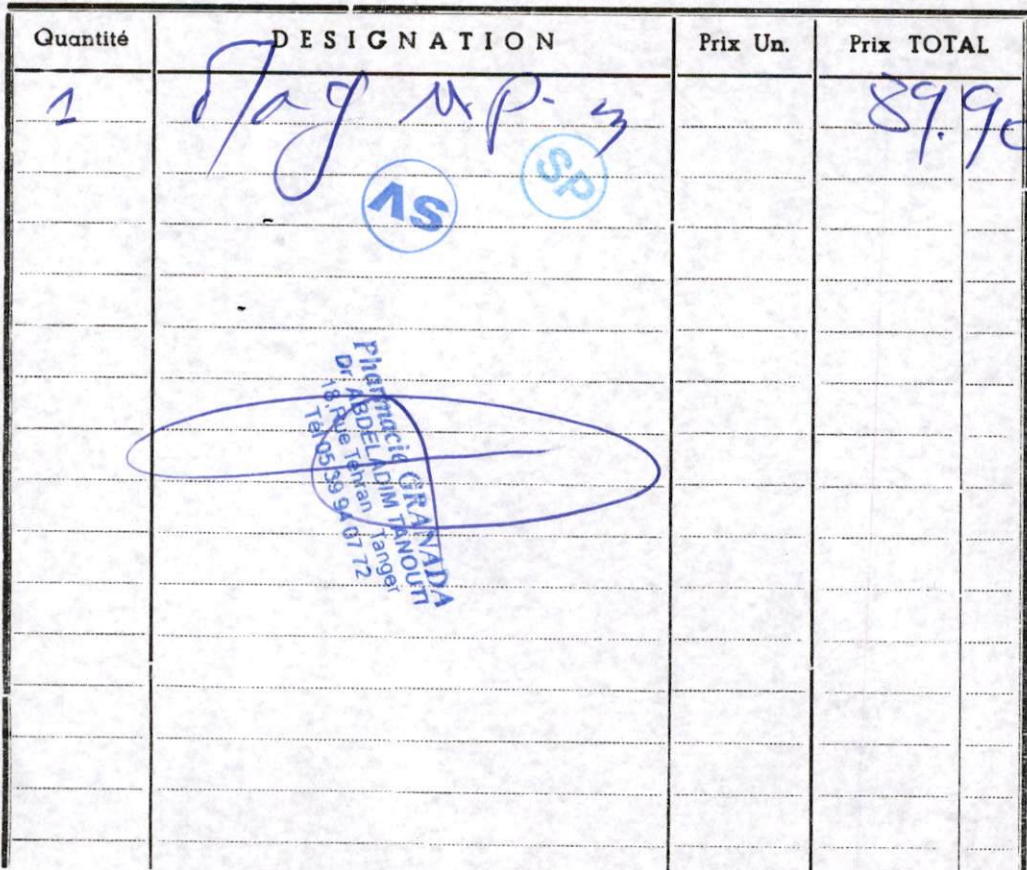 Quantité DESIGNATION Prix Un. Prix TOTAL
1 89.90
SP
SV
Pharmacie GRANADA
Dr ABDELADIM TANOUTI
18, Rue Tehran - Tanger
Tél 05 39 94 07 72